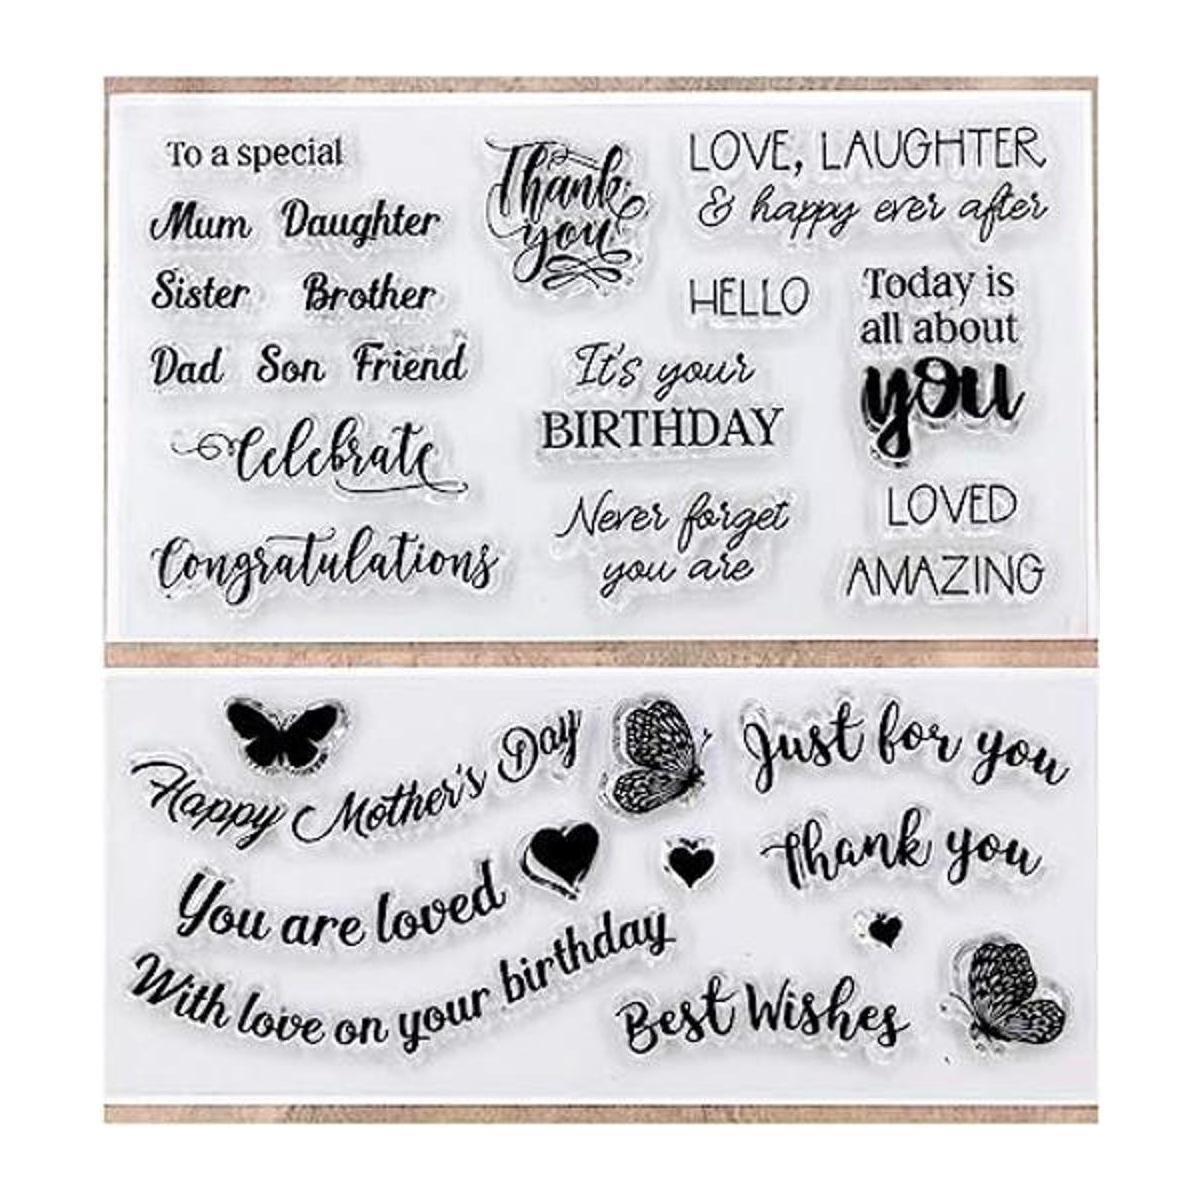 To a special
Mum Daughter
Sister Brother
Dad Son Friend
Celebrate
Congratulations
Thank
you
It's your
BIRTHDAY
Never forget
you are
LOVE, LAUGHTER
& happy ever after
HELLO
Today is
all about
you
LOVED
AMAZING
Happy Mother's Day
You are loved
With love on your birthday
Just for you
Thank you
Best Wishes